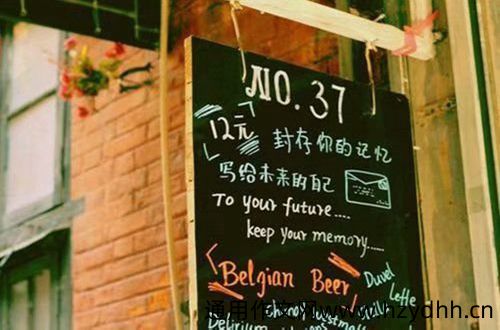 NO. 37
12元
封存你的记忆
写给未来的自己
To your future....
keep your memory.....
Belgian Beer
Duvel
Leffe
通用作文网www.hzydhh.cn
Delirium